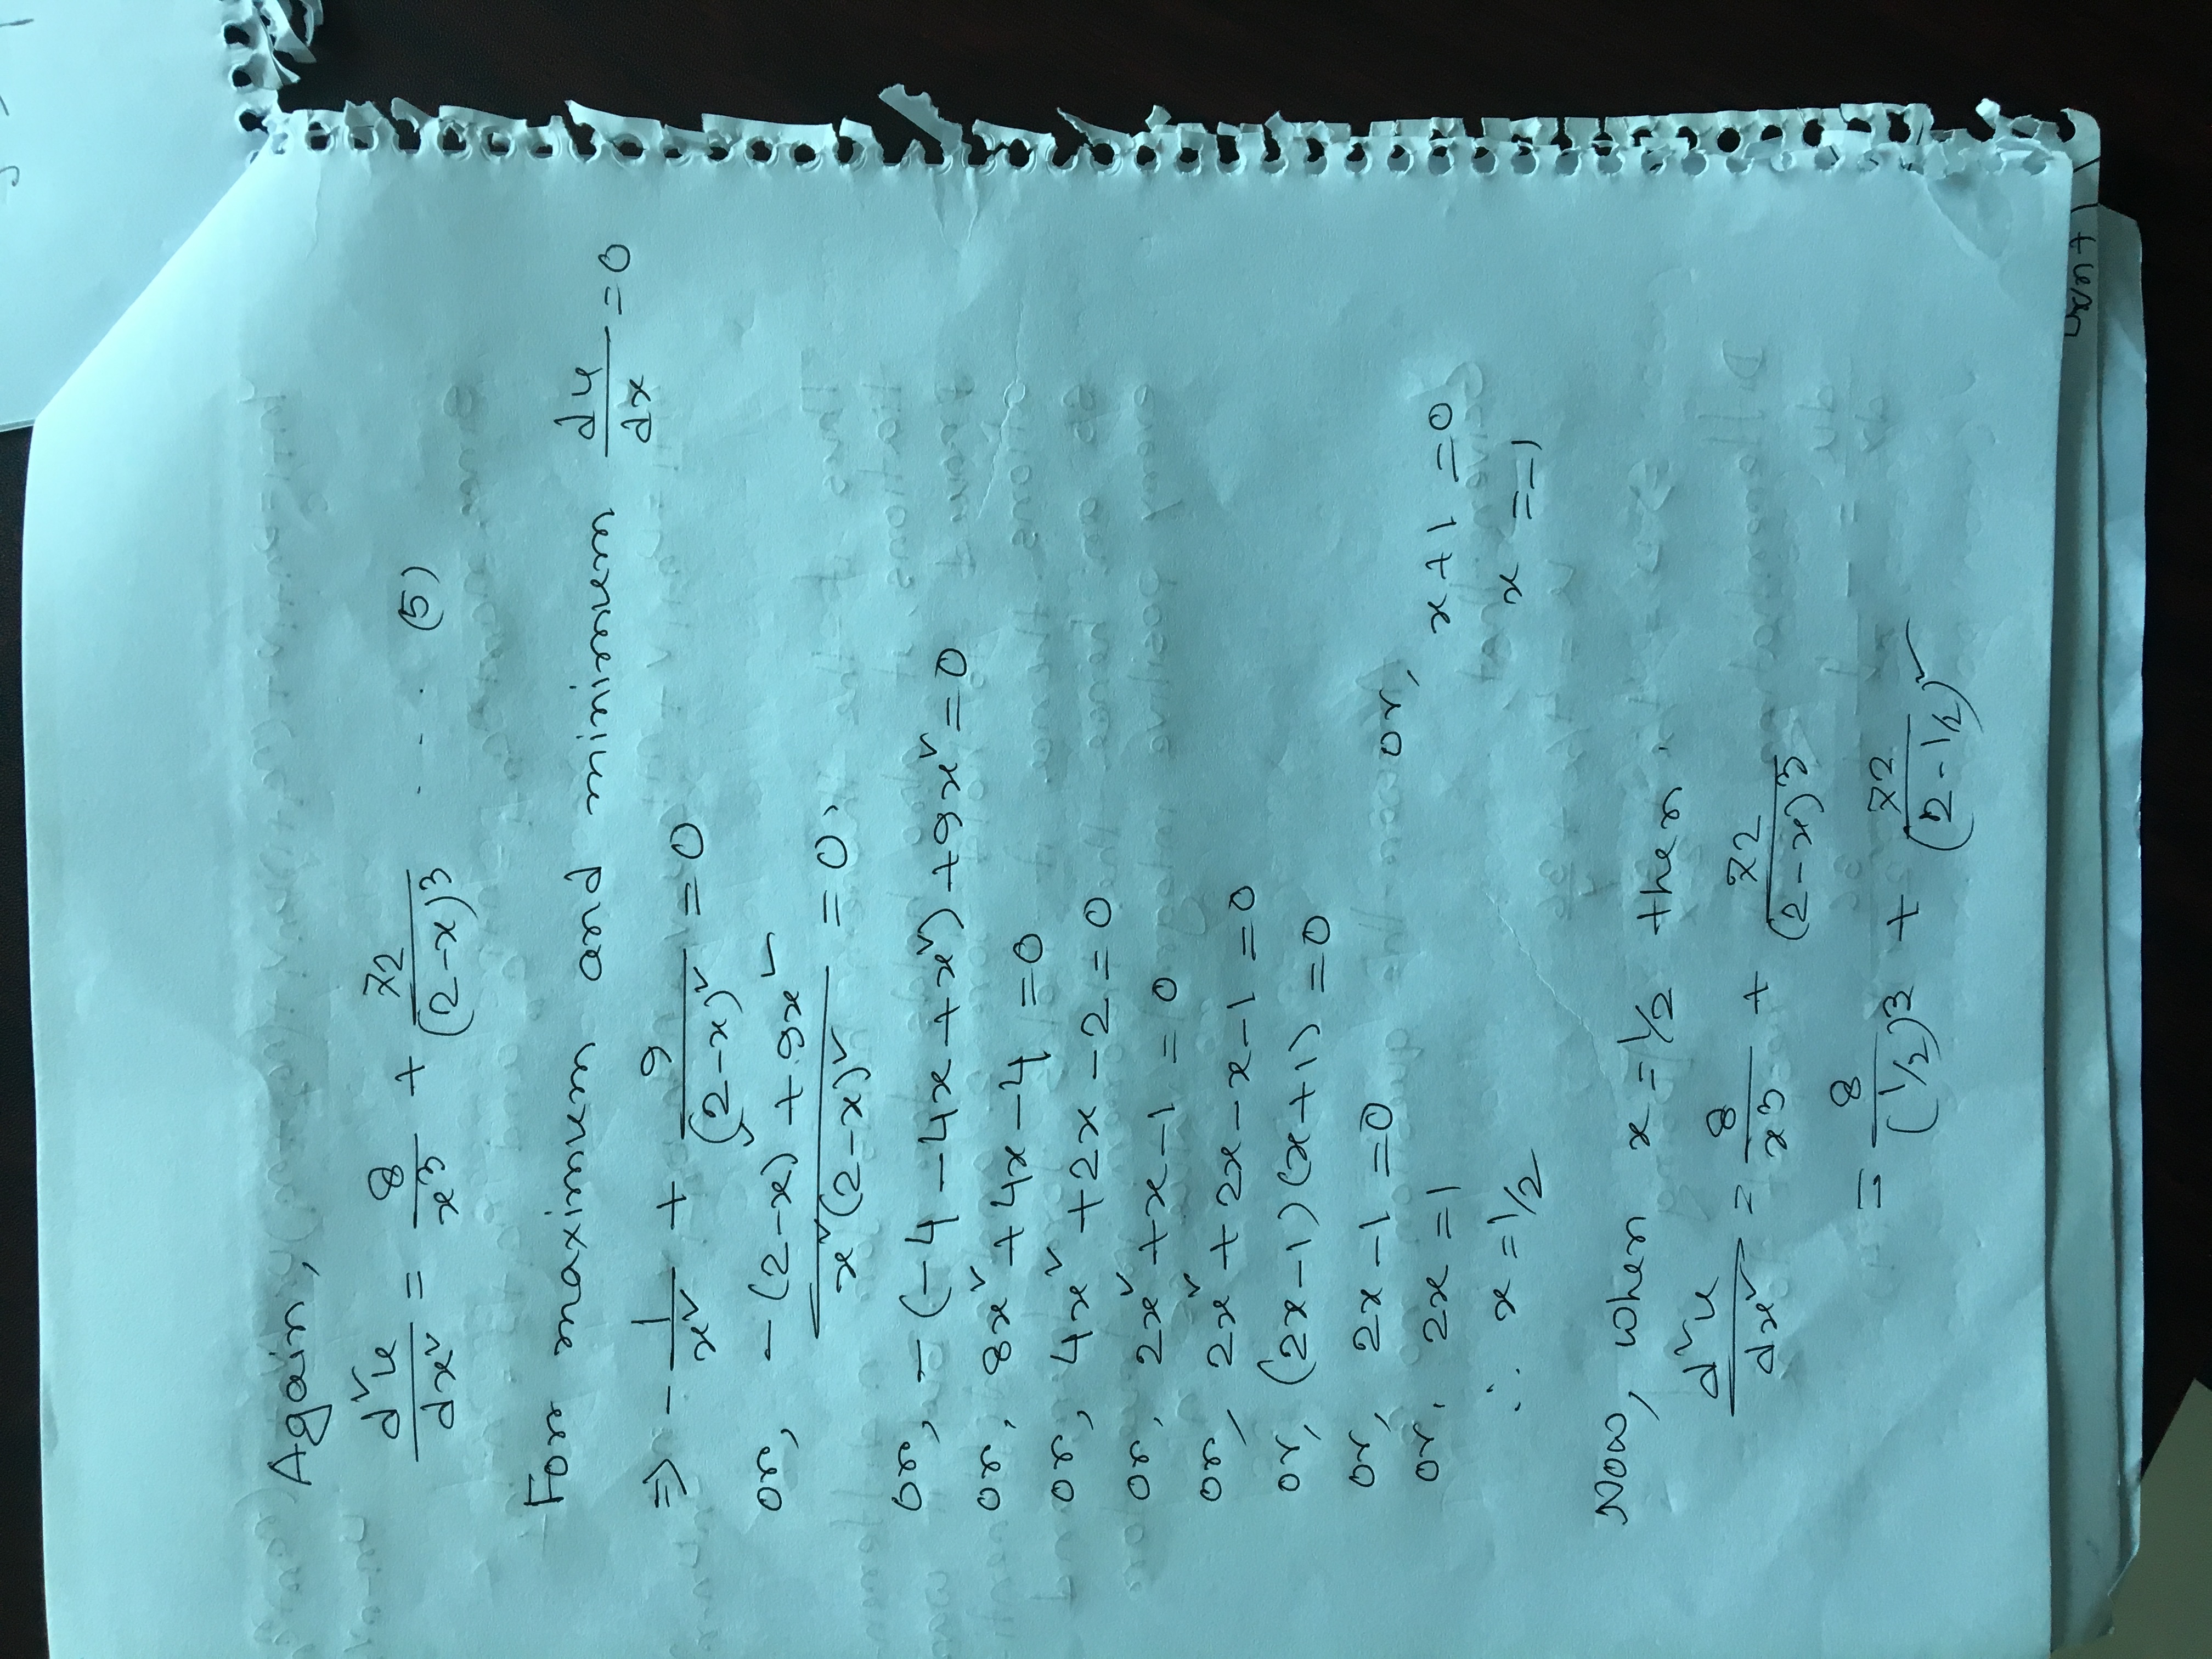 Again,
d²u/dx² = 8/x³ + 72/(2-x)³ .... (5)
For maximum and minimum du/dx = 0
⇒ - 1/x² + 9/(2-x)² = 0
or, (-(2-x)² + 9x²)/(x²(2-x)²) = 0,
or, -(-4 - 4x + x²) + 9x² = 0
or, 8x² + 4x - 4 = 0
or, 4x² + 2x - 2 = 0
or, 2x² + x - 1 = 0
or, 2x² + 2x - x - 1 = 0
or, (2x-1)(x+1) = 0
or, 2x - 1 = 0 or,
or, 2x = 1 x + 1 = 0
∴ x = 1/2 x = -1
Now, when x = 1/2 then
d²u/dx² = 8/x³ + 72/(2-x)³
= 8/(1/2)³ + 72/(2-1/2)²